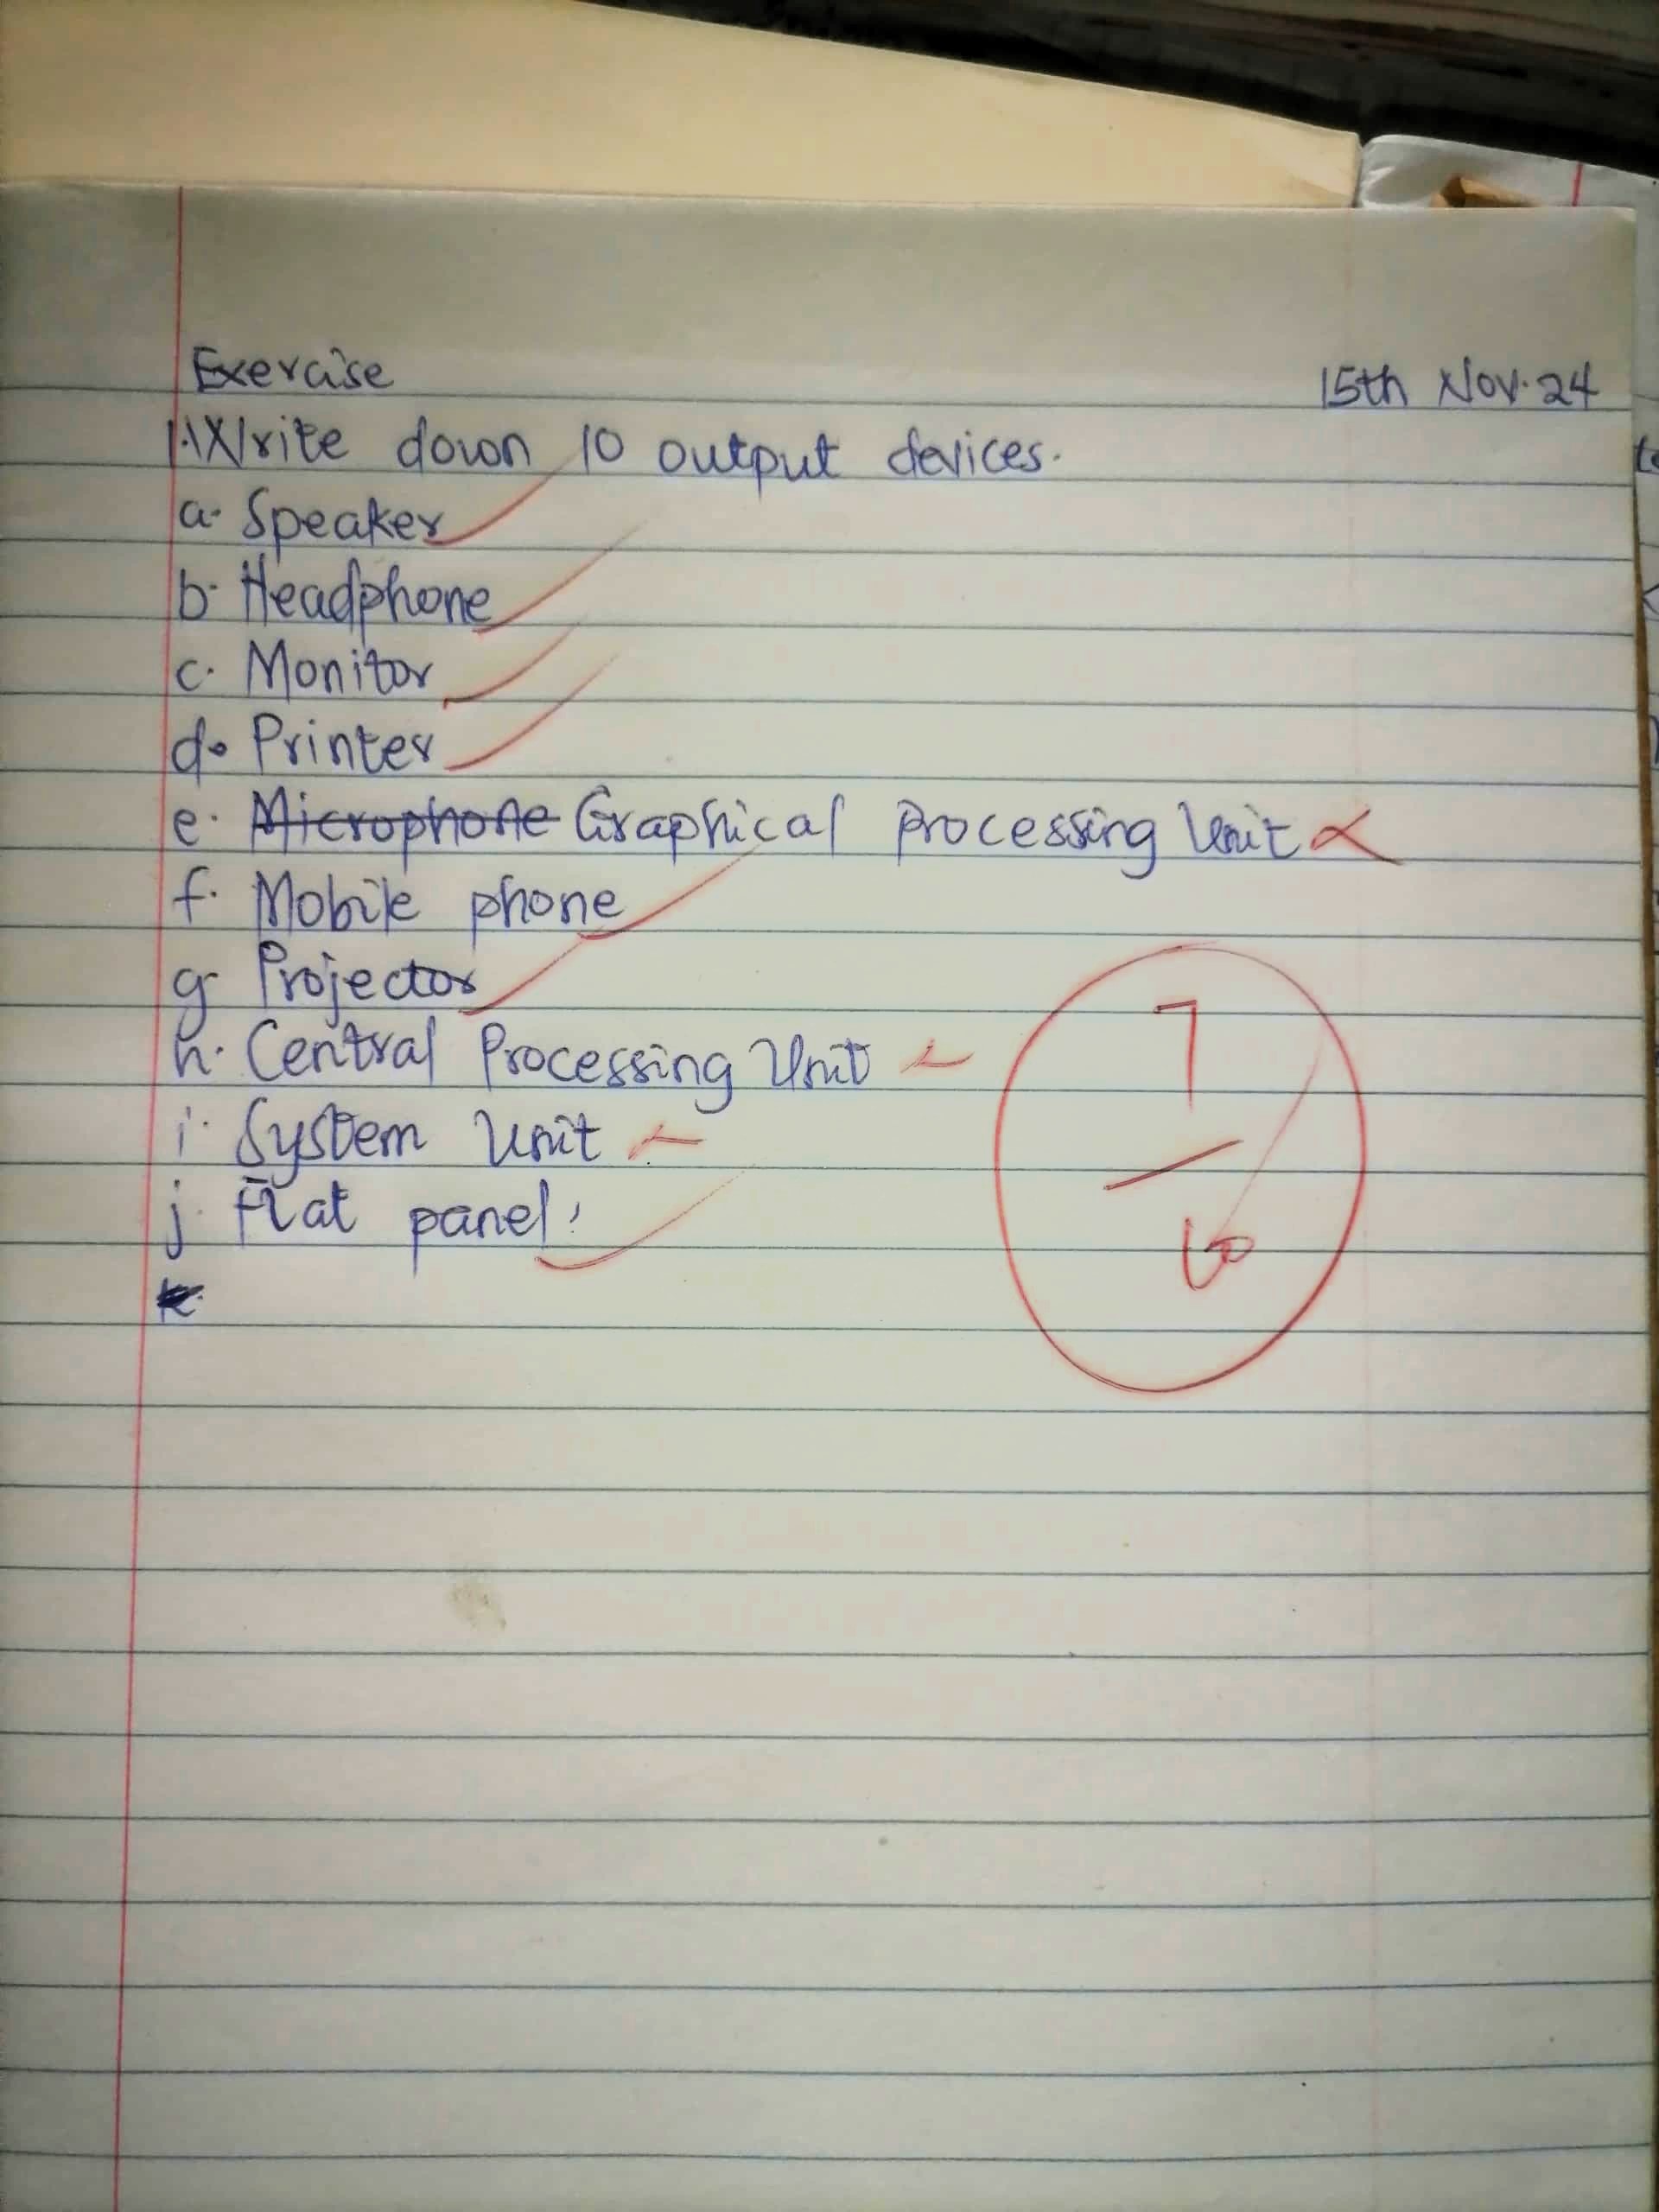 Exercise 15th Nov. 24
1. Write down 10 output devices.
a. Speaker
b. Headphone
c. Monitor
d. Printer
e. Microphone Graphical Processing Unit
f. Mobile phone
g. Projector
h. Central Processing Unit
i. System Unit
j. Flat panel.
k.
7
10